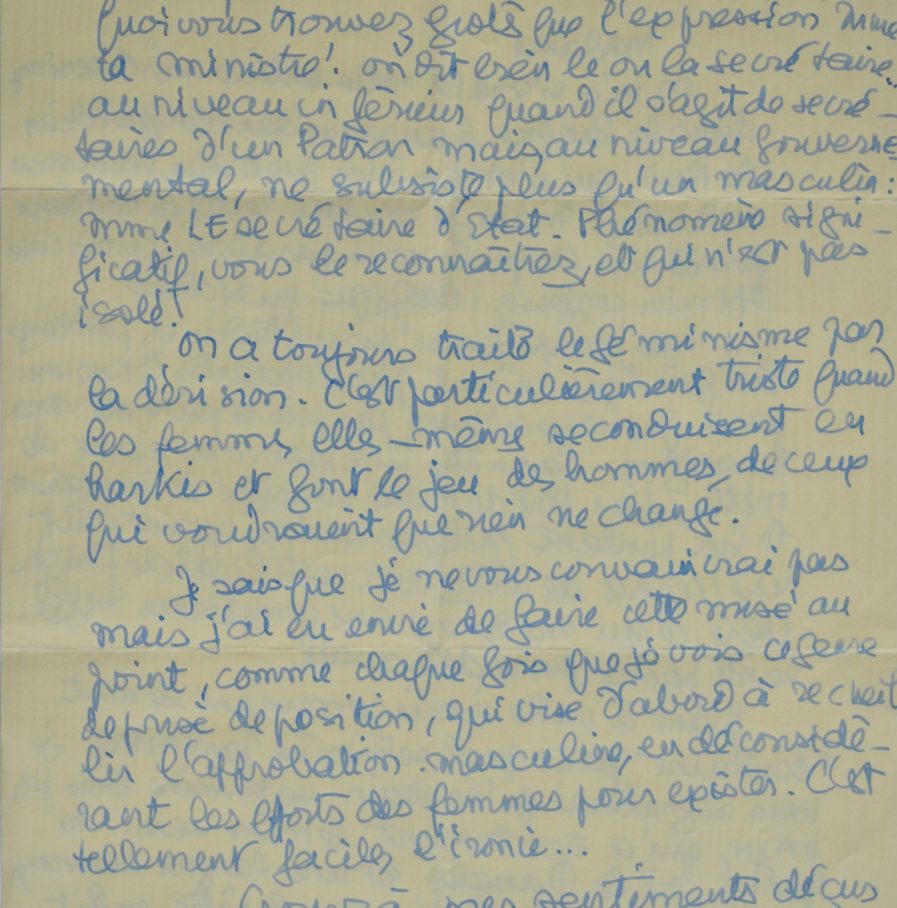 quoi vous trouvez grotesque l'expression Mme
la ministre! on dit bien le ou la secrétaire..
au niveau inférieur quand il s'agit de secré-
taires d'un Patron mais, au niveau gouverne
mental, ne subsiste plus qu'un masculin:
Mme LE secrétaire d'Etat. Phénomène signi-
ficatif, vous le reconnaîtrez, et qui n'est pas
isolé!
on a toujours traité le féminisme par
la dérision. C'est particulièrement triste quand
les femmes elles-mêmes se conduisent en
harkis et font le jeu des hommes, de ceux
qui voudraient que rien ne change.
Je sais que je ne vous convaincrai pas
mais j'ai eu envie de faire cette mise au
point, comme chaque fois que je vois ce genre
de prise de position, qui vise d'abord à recueil
lir l'approbation masculine, en déconsidé-
rant les efforts des femmes pour exister. C'est
tellement facile, l'ironie...
Croyez à mes sentiments déçus